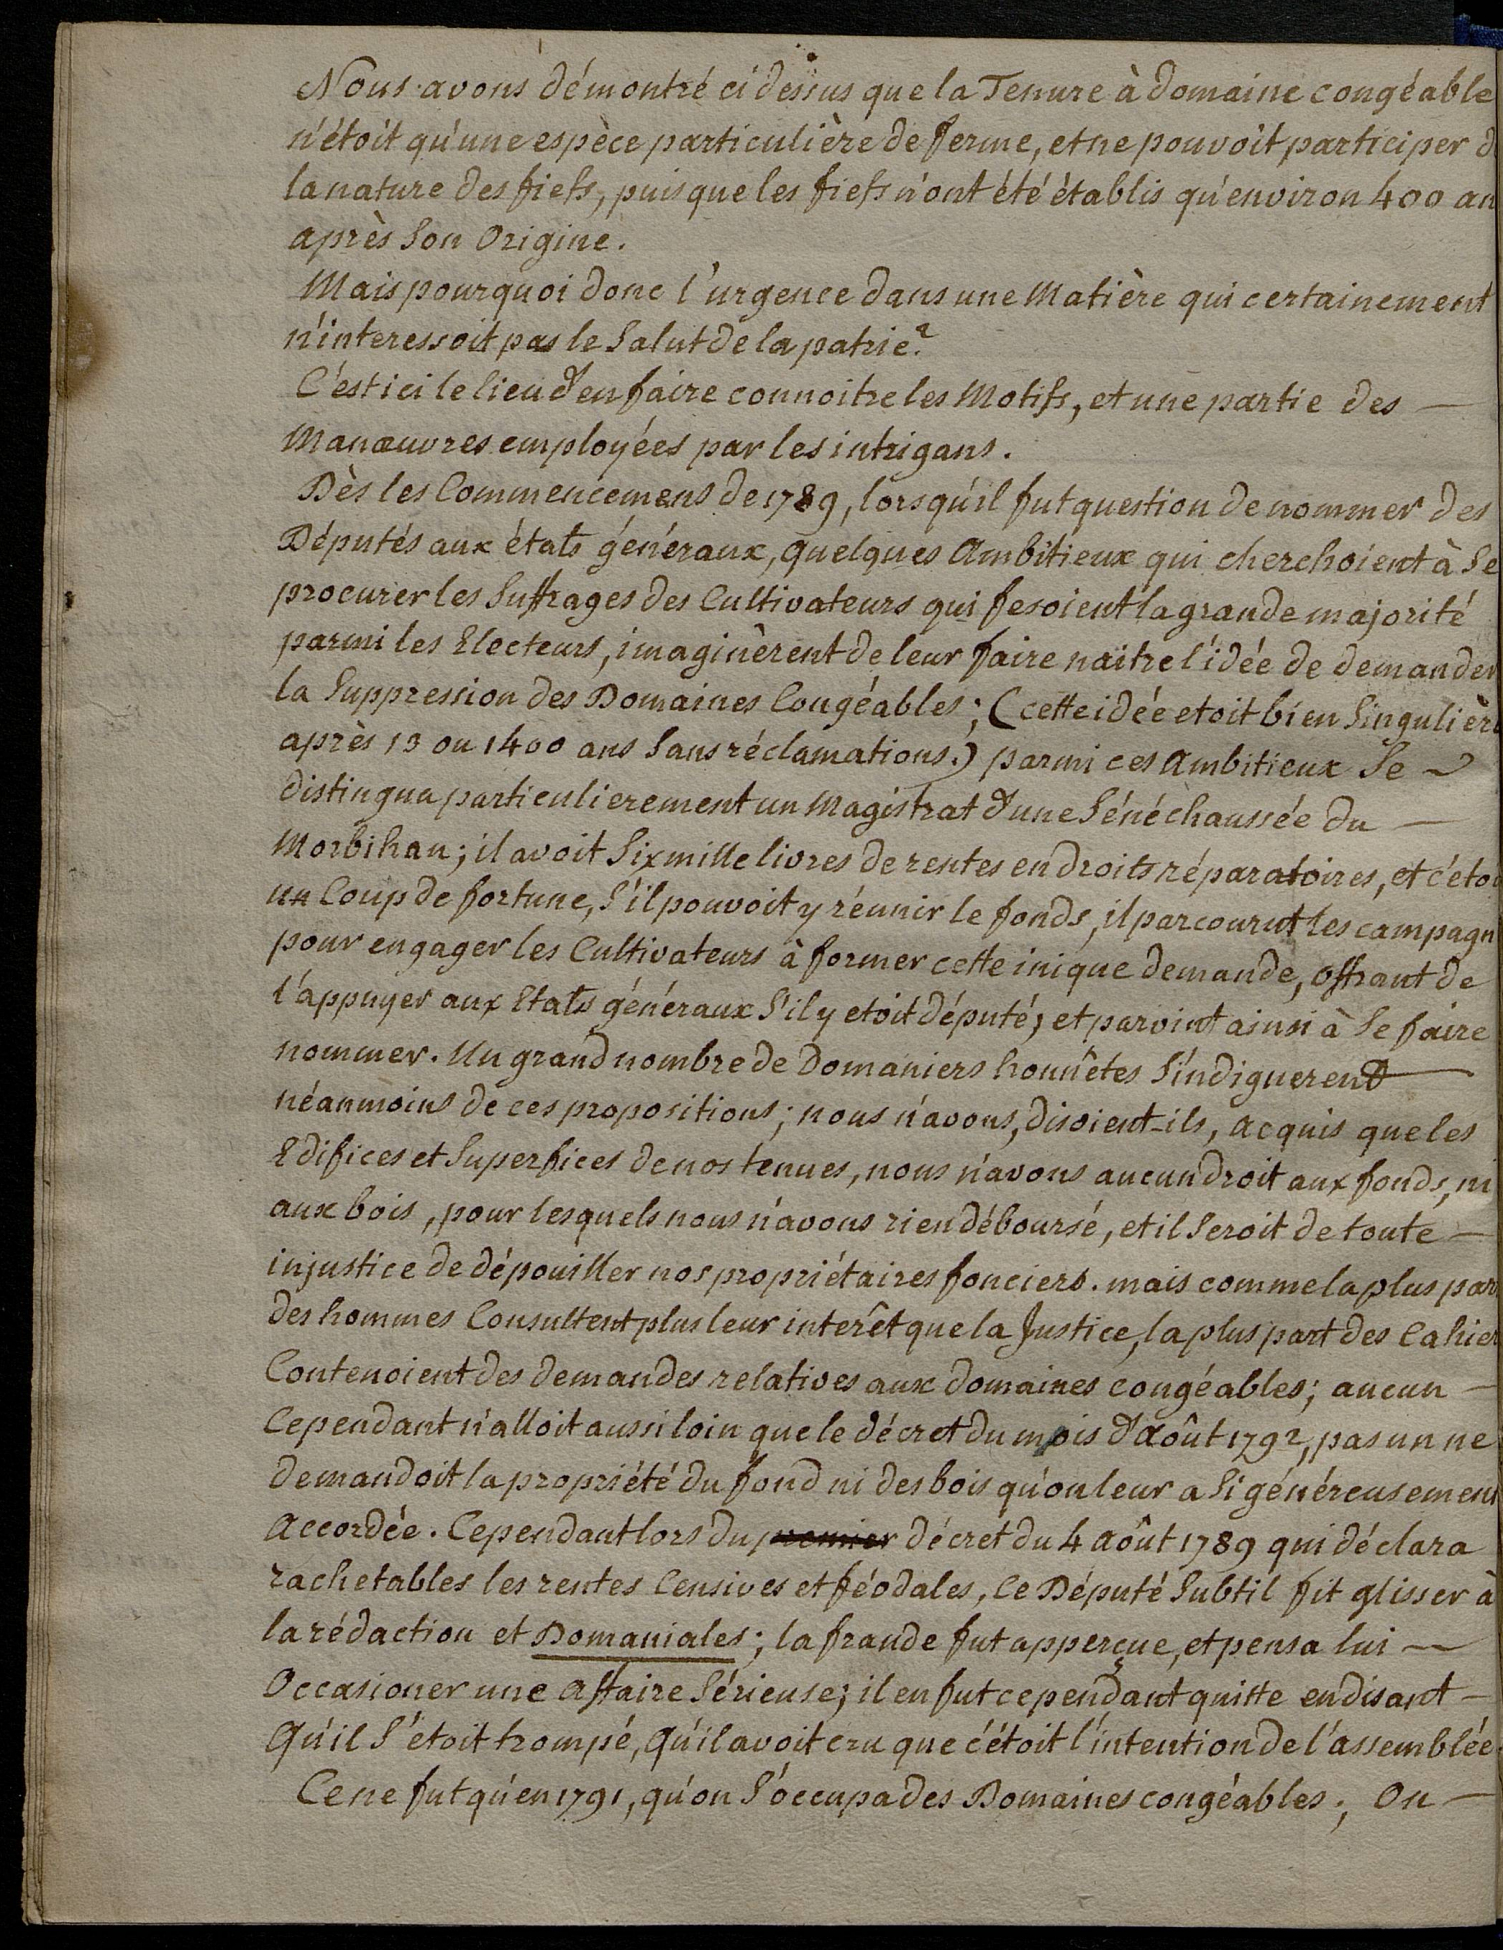 Nous avons démontré ci dessus que la Tenure à domaine congéable
n'étoit qu'une espèce particulière de ferme, et ne pouvoit participer d
la nature des fiefs, puisque les fiefs n'ont été établis qu'environ 400 an
après son Origine.
Mais pourquoi donc l'urgence dans une Matière qui certainement
n'interessoit pas le Salut de la patrie?
C'est ici le lieu d'en faire connoitre les Motifs, et une partie des —
Manœuvres employées par les intrigans.
Dès les Commencemens de 1789, lorsqu'il fut question de nommer des
Députés aux états généraux, quelques Ambitieux qui cherchoient à Se
procurer les Suffrages des Cultivateurs qui fesoient la grande majorité
parmi les Electeurs, imaginèrent de leur faire naitre l'idée de demander
la Suppression des Domaines Congéables; (cette idée etoit bien Singulièr
après 13 ou 1400 ans Sans réclamations.) parmi ces Ambitieux Se ~
distingua particulierement un Magistrat d'une Sénéchaussée du —
Morbihan; il avoit Six mille livres de rentes en droits réparatoires, et c'étoi
un Coup de fortune, S'il pouvoit y réunir le fonds, il parcourut les campagn
pour engager les Cultivateurs à former cette inique demande, offrant de
l'appuyer aux Etats généraux S'il y etoit député; et parvint ainsi à Se faire
nommer. Un grand nombre de Domaniers honnêtes S'indignerent —
néanmoins de ces propositions; nous n'avons, disoient-ils, acquis que les
Edifices et Superfices de nos tenues, nous n'avons aucun droit aux fonds, ni
aux bois, pour lesquels nous n'avons rien déboursé, et il Seroit de toute —
injustice de dépouiller nos propriétaires fonciers. mais comme la plus par
des hommes Consultent plus leur interêt que la Justice, la plus part des Cahier
Contenoient des demandes relatives aux domaines congéables; aucun —
Cependant n'alloit aussi loin que le décret du mois d'Août 1792, pas un ne
demandoit la propriété du fond ni des bois qu'on leur a Si généreusement
Accordée. Cependant lors du premier décret du 4 Août 1789 qui déclara
rachetables les rentes Censives et féodales, Ce Député Subtil fit glisser à
la rédaction et Domaniales; la fraude fut apperçue, et pensa lui —
Occasioner une affaire Sérieuse; il en fut cependant quitte en disant —
Qu'il S'étoit trompé, Qu'il avoit cru que c'étoit l'intention de l'assemblée
Ce ne fut qu'en 1791, qu'on S'occupa des Domaines congéables; On —